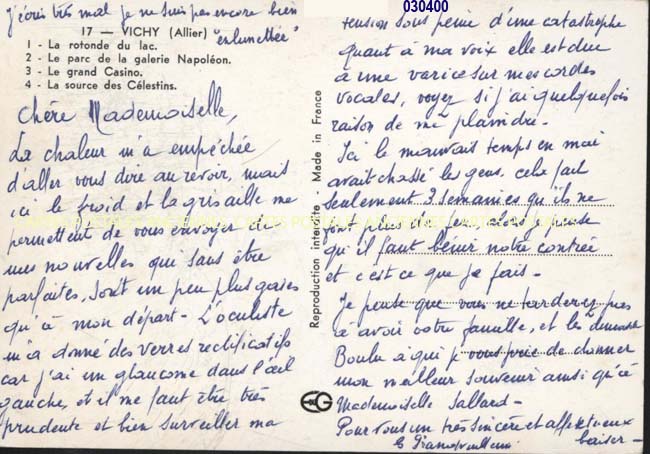 J'écris très mal je ne suis pas encore bien
"enlunettée"
030400
17 — VICHY (Allier)
1 - La rotonde du lac.
2 - Le parc de la galerie Napoléon.
3 - Le grand Casino.
4 - La source des Célestins.
Chère Mademoiselle,
La chaleur m'a empêchée
d'aller vous dire au revoir, mais
ici le froid et la grisaille me
permettent de vous envoyer de
mes nouvelles qui sans être
parfaites, sont un peu plus gaies
qu'à mon départ - L'oculiste
m'a donné des verres rectificatifs
car j'ai un glaucome dans l'œil
gauche, et il me faut être très
prudente et bien surveiller ma
Reproduction interdite Made in France
tension sous peine d'une catastrophe
quant à ma voix elle est due
à une varice sur mes cordes
vocales, voyez si j'ai quelquefois
raison de me plaindre -
Ici le mauvais temps en mai
avait chassé les gens, cela fait
seulement 3 semaines qu'ils ne
font plus de feu, alors je pense
qu'il faut bénir notre contrée
et c'est ce que je fais -
Je pense que vous ne tarderez pas
à avoir votre famille, et les
Boulu à qui je vous prie de donner
mon meilleur souvenir ainsi qu'à
Mademoiselle Sallard -
Pour vous un très sincère et affectueux
baiser -
EG